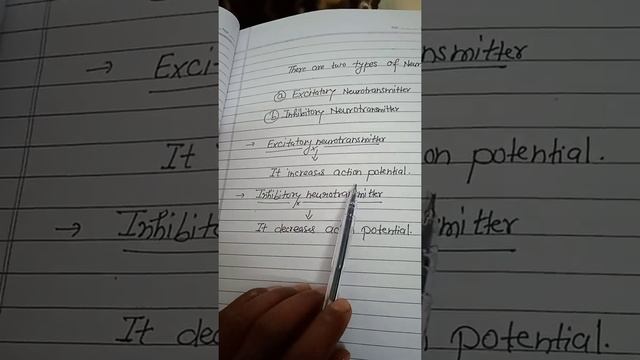 There are two types of Neur
ⓐ Excitatory Neurotransmitter
ⓑ Inhibitory Neurotransmitter
→ Excitatory neurotransmitter
↓
It increases action potential.
→ Inhibitory neurotransmitter
↓
It decreases action potential.